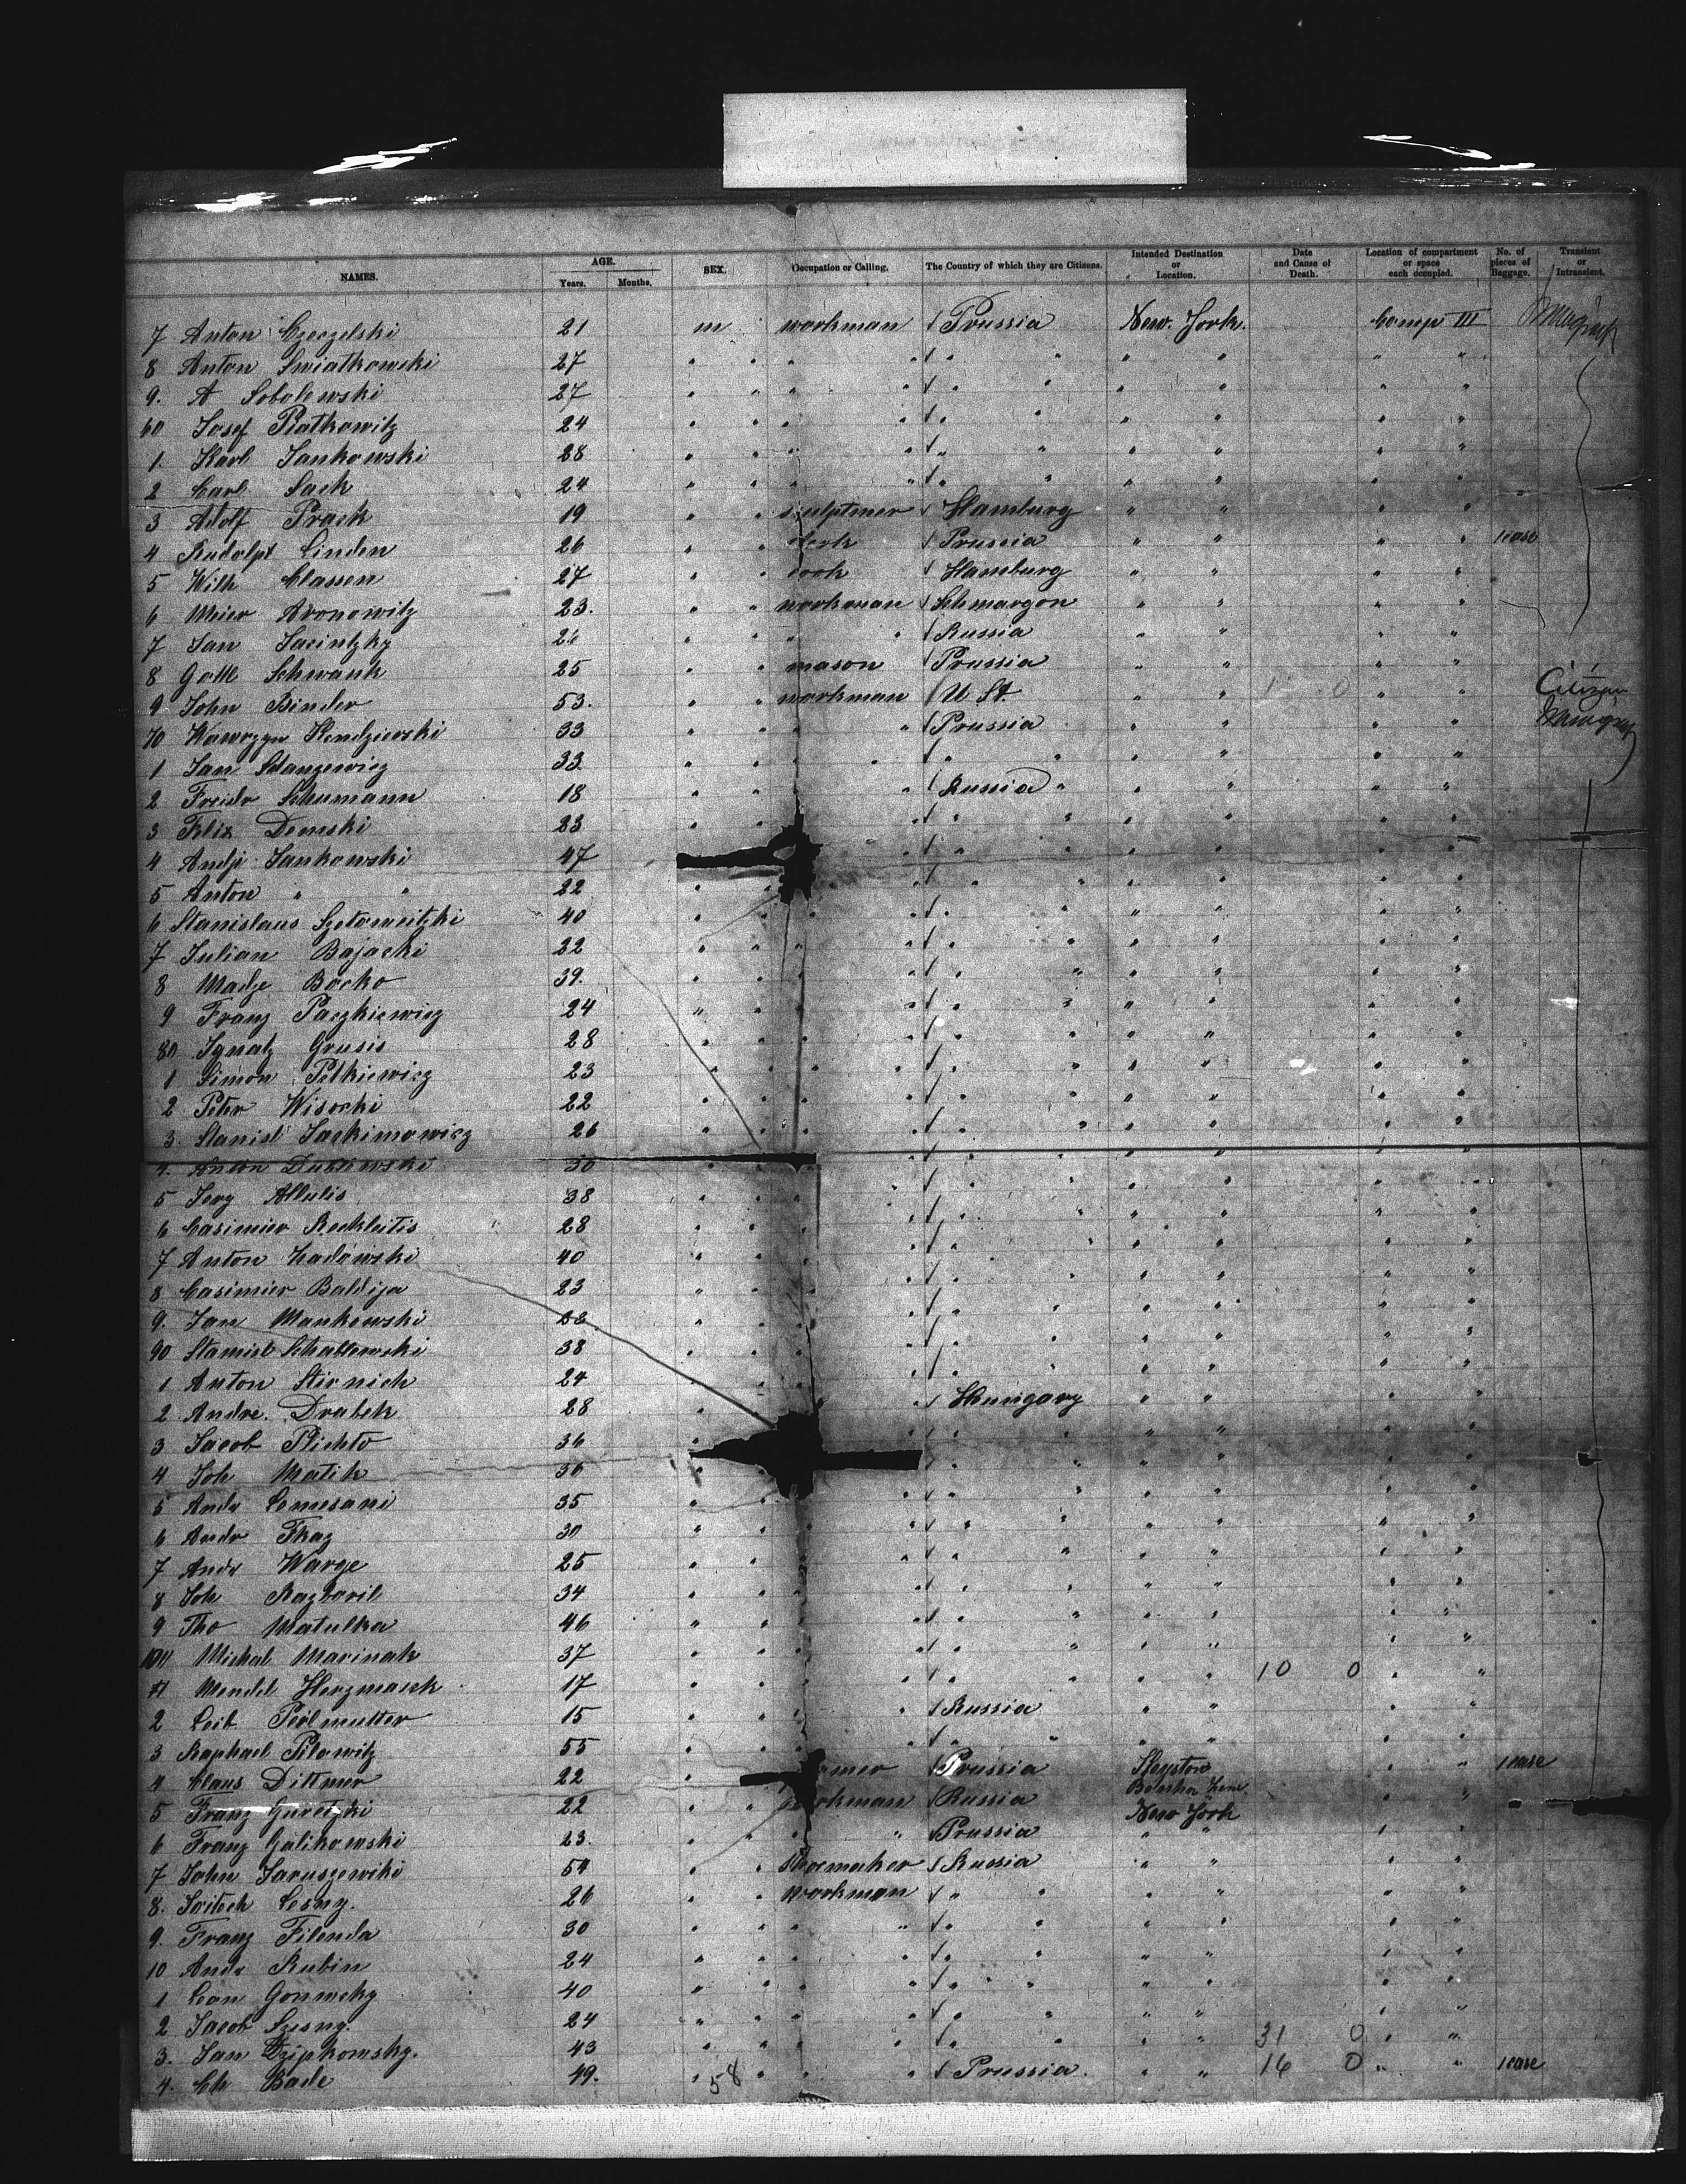 NAMES. AGE. Years. Months. SEX. Occupation or Calling. The Country of which they are Citizens. Intended Destination or Location. Date and Cause of Death. Location of compartment or space each occupied. No. of pieces of Baggage. Transient or Intransient.
7 Anton Czeczelski 21 m workman √ Prussia New York. Comp III
8 Anton Swiatkowski 27 " " " √ " " " " " "
9. A Sobolewski 27 " " " " √ " " " " " "
60 Josef Piatkowitz 24 " " " " √ " " " " " "
1. Karl Jankowski 28 " " " " √ " " " " " "
2 Carl Sack 24 " " " " √ " " " " " "
3 Adolf Prack 19 " " √ Hamburg " " " "
4 Rudolph Linden 26 " " √ Prussia " " " " 1 case
5 Wilh Classen 27 " " cook √ Hamburg " " " "
6 Meier Aronowitz 23. " " workman √ Schmargon " " " "
7 Jan Jacintzky " " " " √ Russia " " " "
8 Gottl Schwank 25 " " mason √ Prussia " " " "
9 John Binder 53. " " workman √ U St. " " 1 0 " " Citizen
70 Wawrzyn Kendzierski 33 " " " " √ Prussia " " " "
1 Jan Stanzewicz 33 " " " " √ " " " " " "
2 Freidr Schumann 18 " " " √ Russia " " " " "
3 Felix Demski 23 " " " √ " " " " " "
4 Andji Jankowski 47 " √ " " " " " "
5 Anton " " 22 " " √ " " " " " "
6 Stanislaus 40 " " " √ " " " " " "
7 Julian Bajacki 22 " " " " √ " " " " " "
8 Madze Bocko 39. " " " " √ " " " " " "
9 Franz Paczkiewicz 24 " " " " √ " " " " " "
80 Ignatz Grusis 28 " " " " √ " " " " " "
1 Simon Petkiewicz 23 " " " " √ " " " " " "
2 Peter Wisocki 22 " " " " √ " " " " " "
3. Stanisl Jackimowicz 26 " " " " √ " " " " " "
4. Anton 30 " " " √ " " " " " "
5 Allulis 38 " " " √ " " " " " "
6 Casimier Reckleitis 28 " " " " √ " " " " " "
7 Anton Zadowski 40 " " " √ " " " " " "
8 Casimier Baldija 23 " " " " √ " " " " " "
9. Jan Mankowski 28 " " " " √ " " " " " "
90 Stanisl Schablewski 38 " " " " √ " " " " " "
1 Anton Stirnich 24 " " " √ " " " " " "
2 Andre. Drabek 28 " " √ Hungary " " " "
3 Jacob Plichto 36 " " √ " " " " " "
4 Joh Matik 36 " " √ " " " " " "
5 Andr Lomesani 35 " " " √ " " " " " "
6 Andr Tkaz 30 " " " √ " " " " " "
7 Andr Warge 25 " " " " √ " " " " " "
8 Joh Razboril 34 " " " √ " " " " " "
9 Tho Matulka 46 " " " " √ " " " " " "
100 Michal Marinak 37 " " " " √ " " " " " "
Mendel Herzmark 17 " " " " √ " " " " 10 0 " "
2 Leib Peolmutter 15 " " " " √ Russia " " " "
3 Raphael Pilowitz 55 " " " " √ " " " " " "
4 Claus Dittmer 22 " √ Prussia " " 1 case
5 Franz Guretzki 22 " " workman √ Russia New York " "
6 Franz Galikowski 23. " " " " √ Prussia " " " "
7 John Jaruszewiki 54 " " Shoemaker √ Russia " " " "
8. Lesny. 26 " " workman √ " " " " " "
9. Franz Filenda 30 " " " " √ " " " " " "
10 Andr Rubin 24 " " " " √ " " " " " "
1 Leon 40 " " " " √ " " " " " "
2 Jacob Szesny. 24 " " " " √ " " " " " "
3. Jan 43 " " " " √ " " " " 31 0 " "
4. Ch Bade 49. " 58 " " " √ Prussia. " " 16 0 " " 1 case